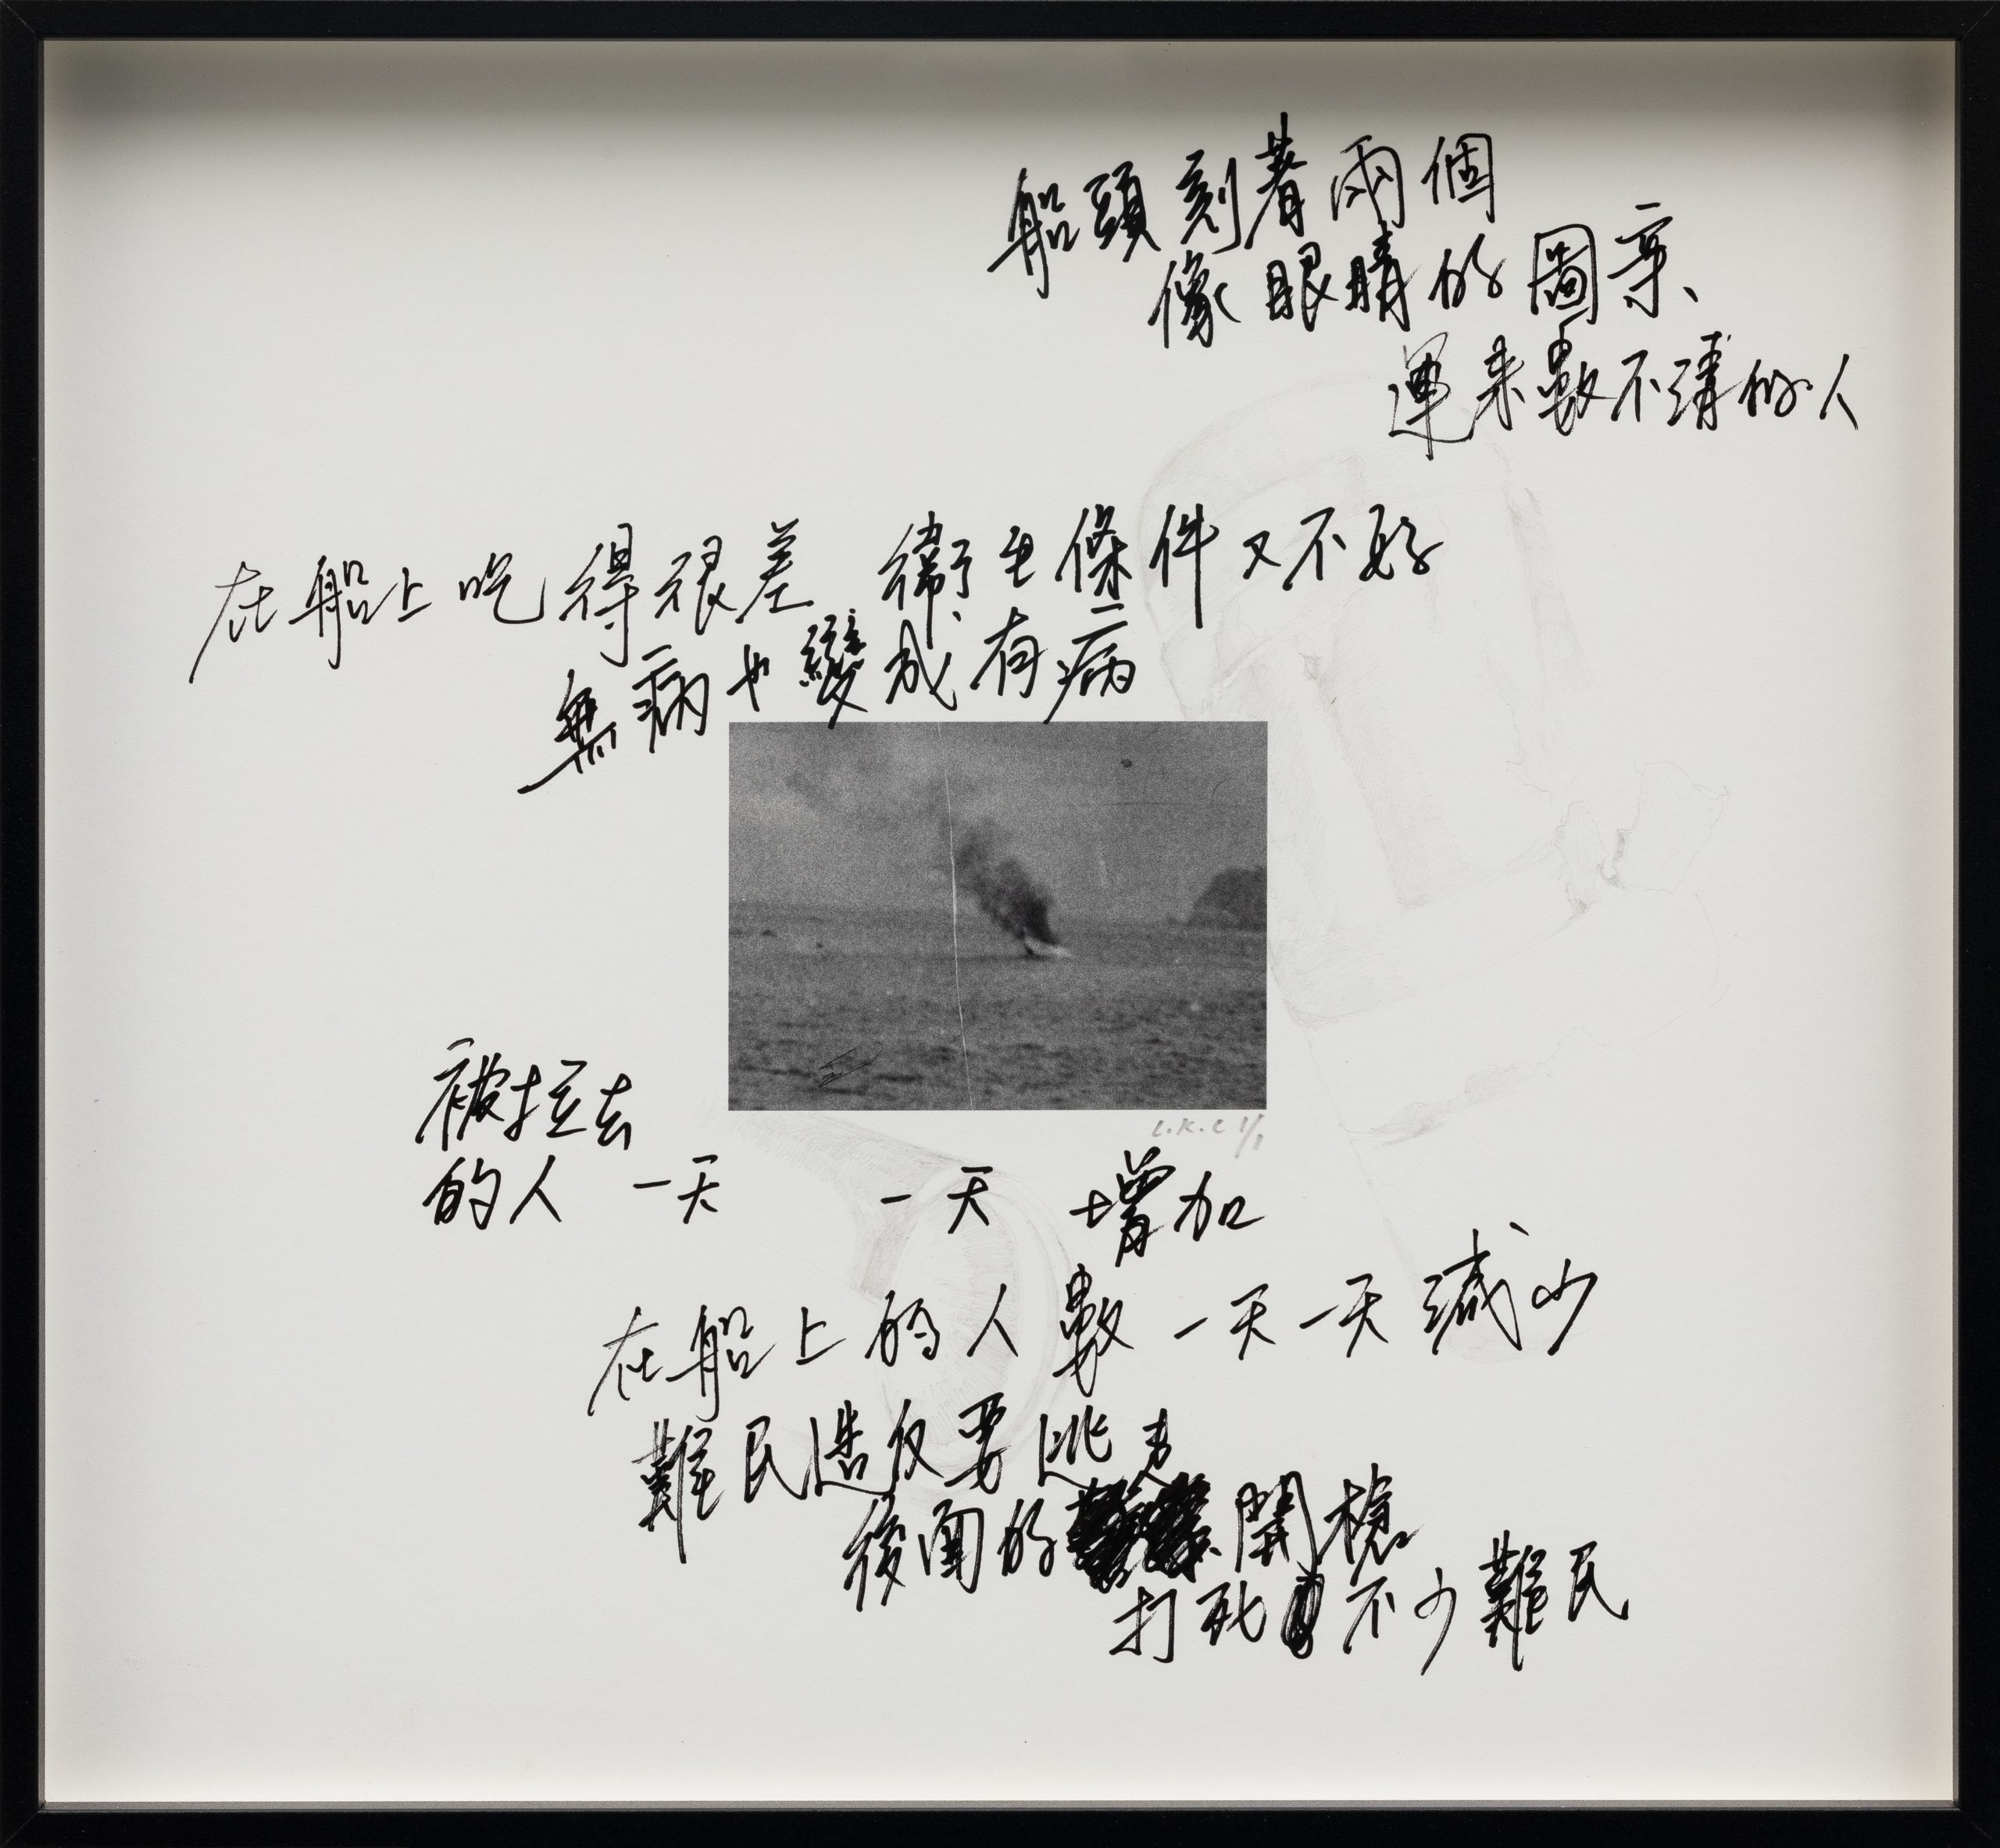 船頭刻着兩個
像眼睛的圖案、
運来數不清的人
在船上吃得很差 衛生條件又不好
無病也變成有病
L.K.C 1/1
被拉去
的人 一天 一天 增加
在船上的人數一天一天減少
難民造反要逃走
後面的 開槍
打死 不少難民